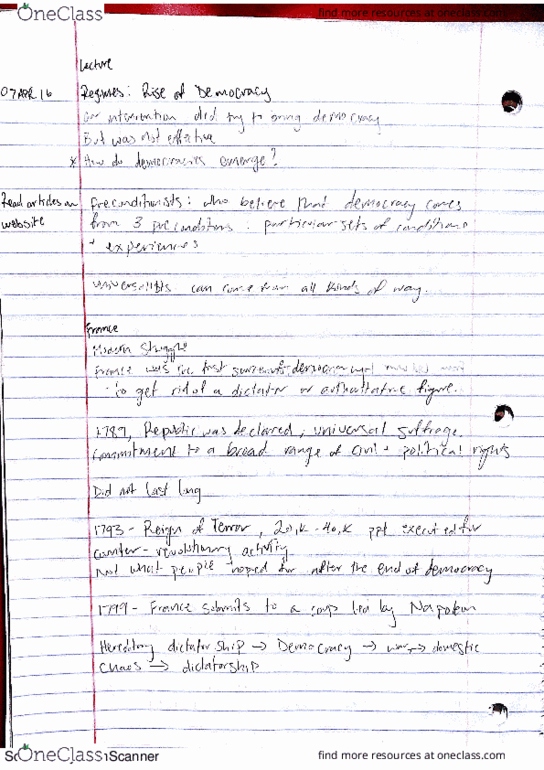 OneClass
find more resources at oneclass.com
Lecture
07APR16
Regimes: Rise of Democracy
intervention did try to bring democracy
But was not effective
* How do democracies emerge?
Read articles on
website
Preconditionists: who believe that democracy comes
from 3 preconditions: particular sets of conditions
+ experiences
Universalists can come from all kinds of way.
France
Modern Struggle
France was the first
to get rid of a dictator or authoritative figure.
1789, Republic was declared, universal suffrage.
Commitment to a broad range of civil + political rights
Did not last long
1793 - Reign of Terror, 20,K-40,K ppl executed for
counter-revolutionary activity
Not what people hoped for after the end of democracy
1799 - France submits to a coup led by Napoleon
Hereditary dictatorship → Democracy → war → domestic
chaos → dictatorship
OneClass
Scanner
find more resources at oneclass.com